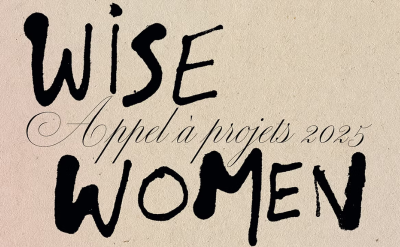 WiSE
Appel à projets 2025
WOMEN